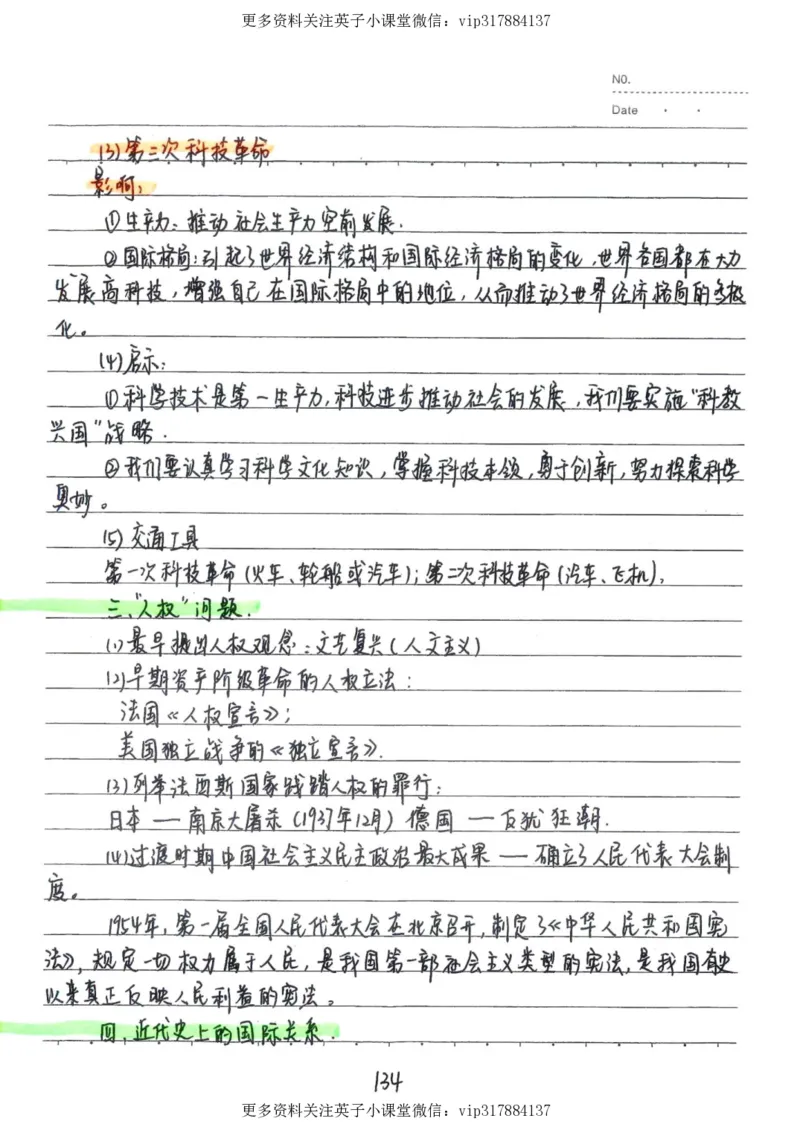 更多资料关注英子小课堂微信：vip317884137
NO.
Date
(3)第三次科技革命
影响：
①生产力：推动社会生产力空前发展.
②国际格局：引起了世界经济结构和国际经济格局的变化.世界各国都在大力
发展高科技，增强自己在国际格局中的地位，从而推动了世界经济格局的多极
化。
(4)启示：
①科学技术是第一生产力,科技进步推动社会的发展，我们要实施“科教
兴国”战略.
②我们要认真学习科学文化知识，掌握科技本领，勇于创新，努力探索科学
奥妙。
(5)交通工具
第一次科技革命(火车、轮船或汽车)；第二次科技革命(汽车、飞机)，
三、“人权”问题.
(1)最早提出人权观念：文艺复兴(人文主义)
(2)早期资产阶级革命的人权立法：
法国《人权宣言》；
美国独立战争的《独立宣言》.
(3)列举法西斯国家践踏人权的罪行：
日本 — 南京大屠杀(1937年12月) 德国 — 反犹狂潮.
(4)过渡时期中国社会主义民主政治最大成果 — 确立了人民代表大会制
度。
1954年，第一届全国人民代表大会在北京召开,制定了《中华人民共和国宪
法》，规定一切权力属于人民，是我国第一部社会主义类型的宪法,是我国有史
以来真正反映人民利益的宪法。
四、近代史上的国际关系.
134
更多资料关注英子小课堂微信：vip317884137